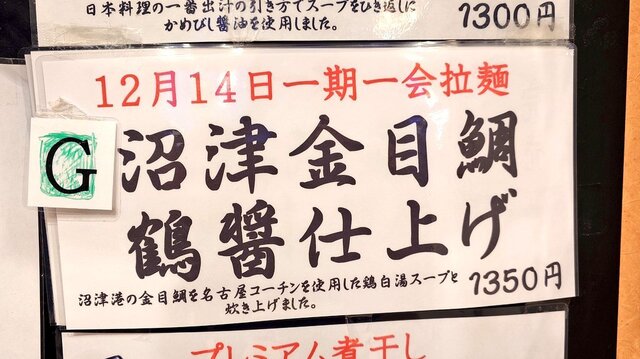 日本料理の一番出汁の引き方でスープをひき返しに
かめびし醤油を使用しました。
1300円
12月14日一期一会拉麺
G
沼津金目鯛
鶴醤仕上げ
沼津港の金目鯛を名古屋コーチンを使用した鶏白湯スープと
炊き上げました。
1350円
プレミアム煮干し